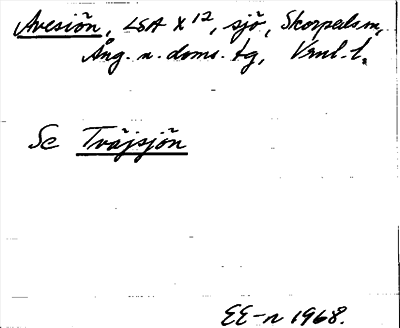 Avesiön, LSA X 12, sjö, Skorpedsm,
Ång. n. doms. tg, Vrnl. l.
Se Tväjsjön
EE-n 1968.